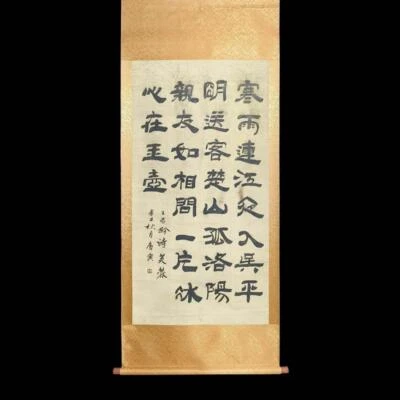 寒雨連江夜入吳平
明送客楚山孤洛陽
親友如相問一片冰
心在玉壺
王昌齡詩芙蓉
辛丑秋月唐寅